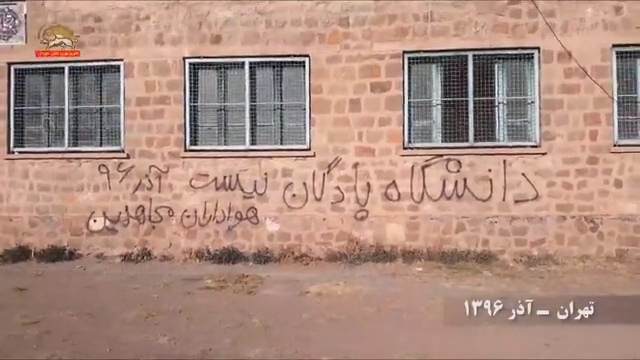 دانشگاه پادگان نیست آذر ۹۶
هواداران مجاهدین
تهران ـ آذر ۱۳۹۶